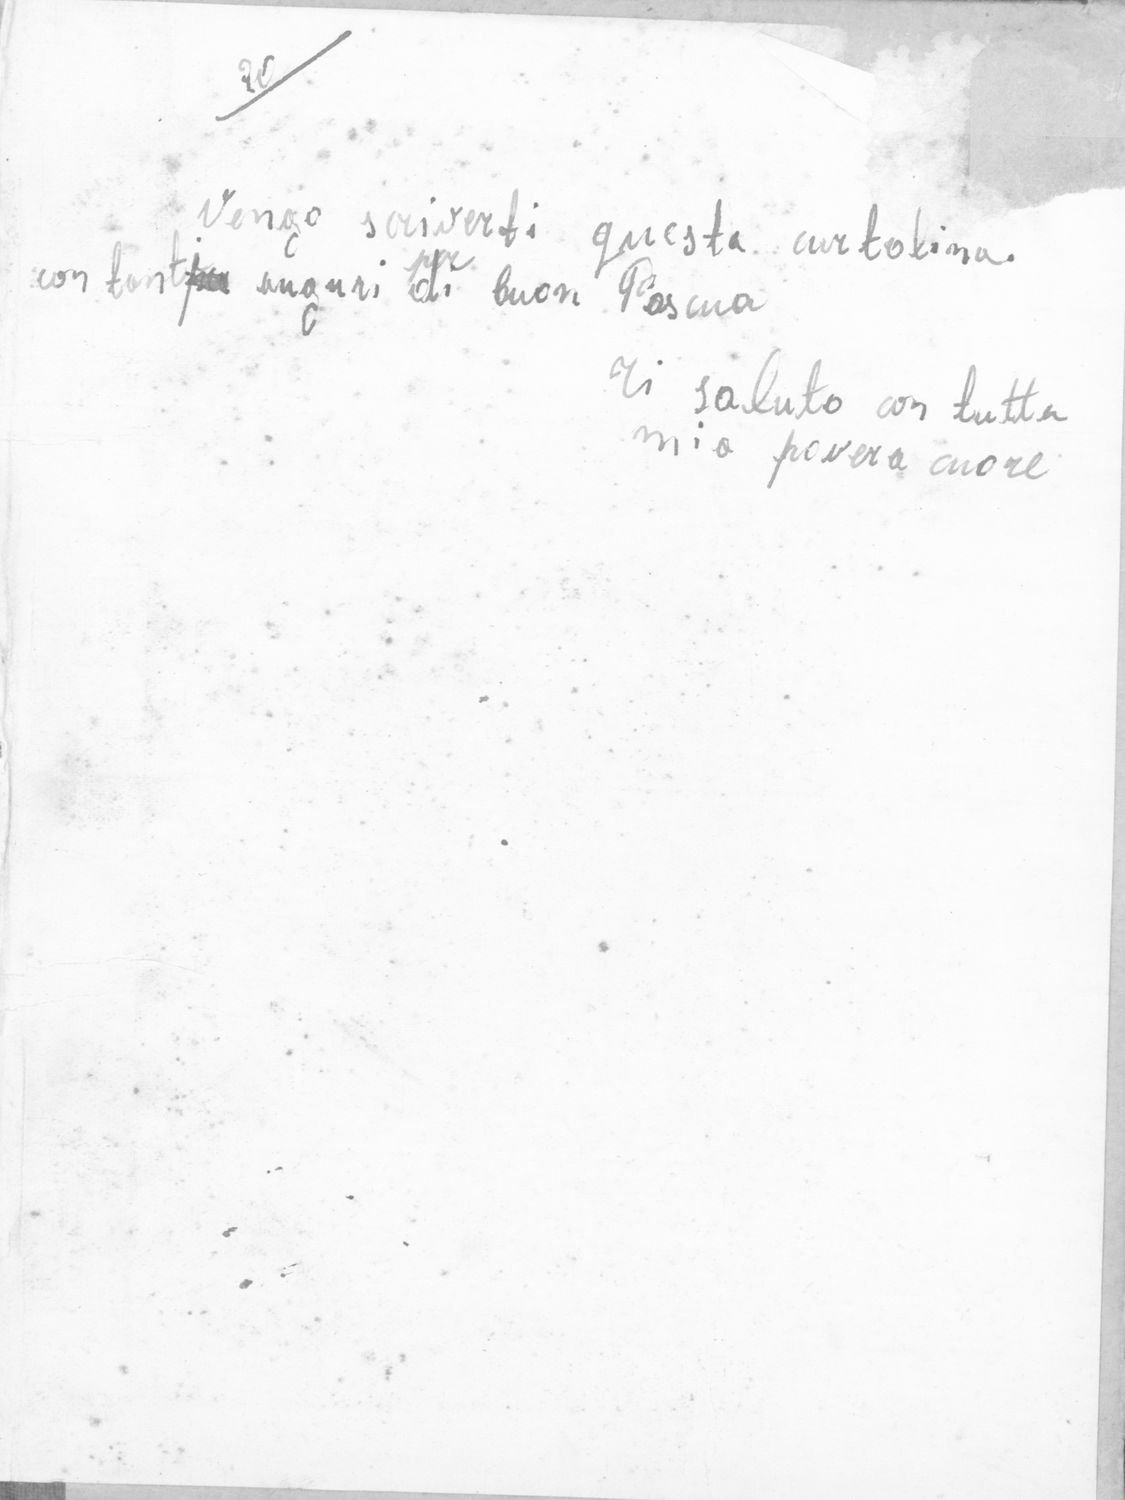 20
Vengo scriverti questa cartolina.
con tanti auguri di per buon Pascua
Ti saluto con tutta
mia povera cuore